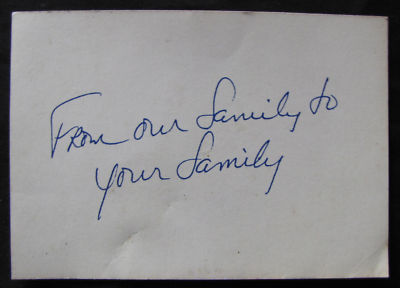 From our family to
your family